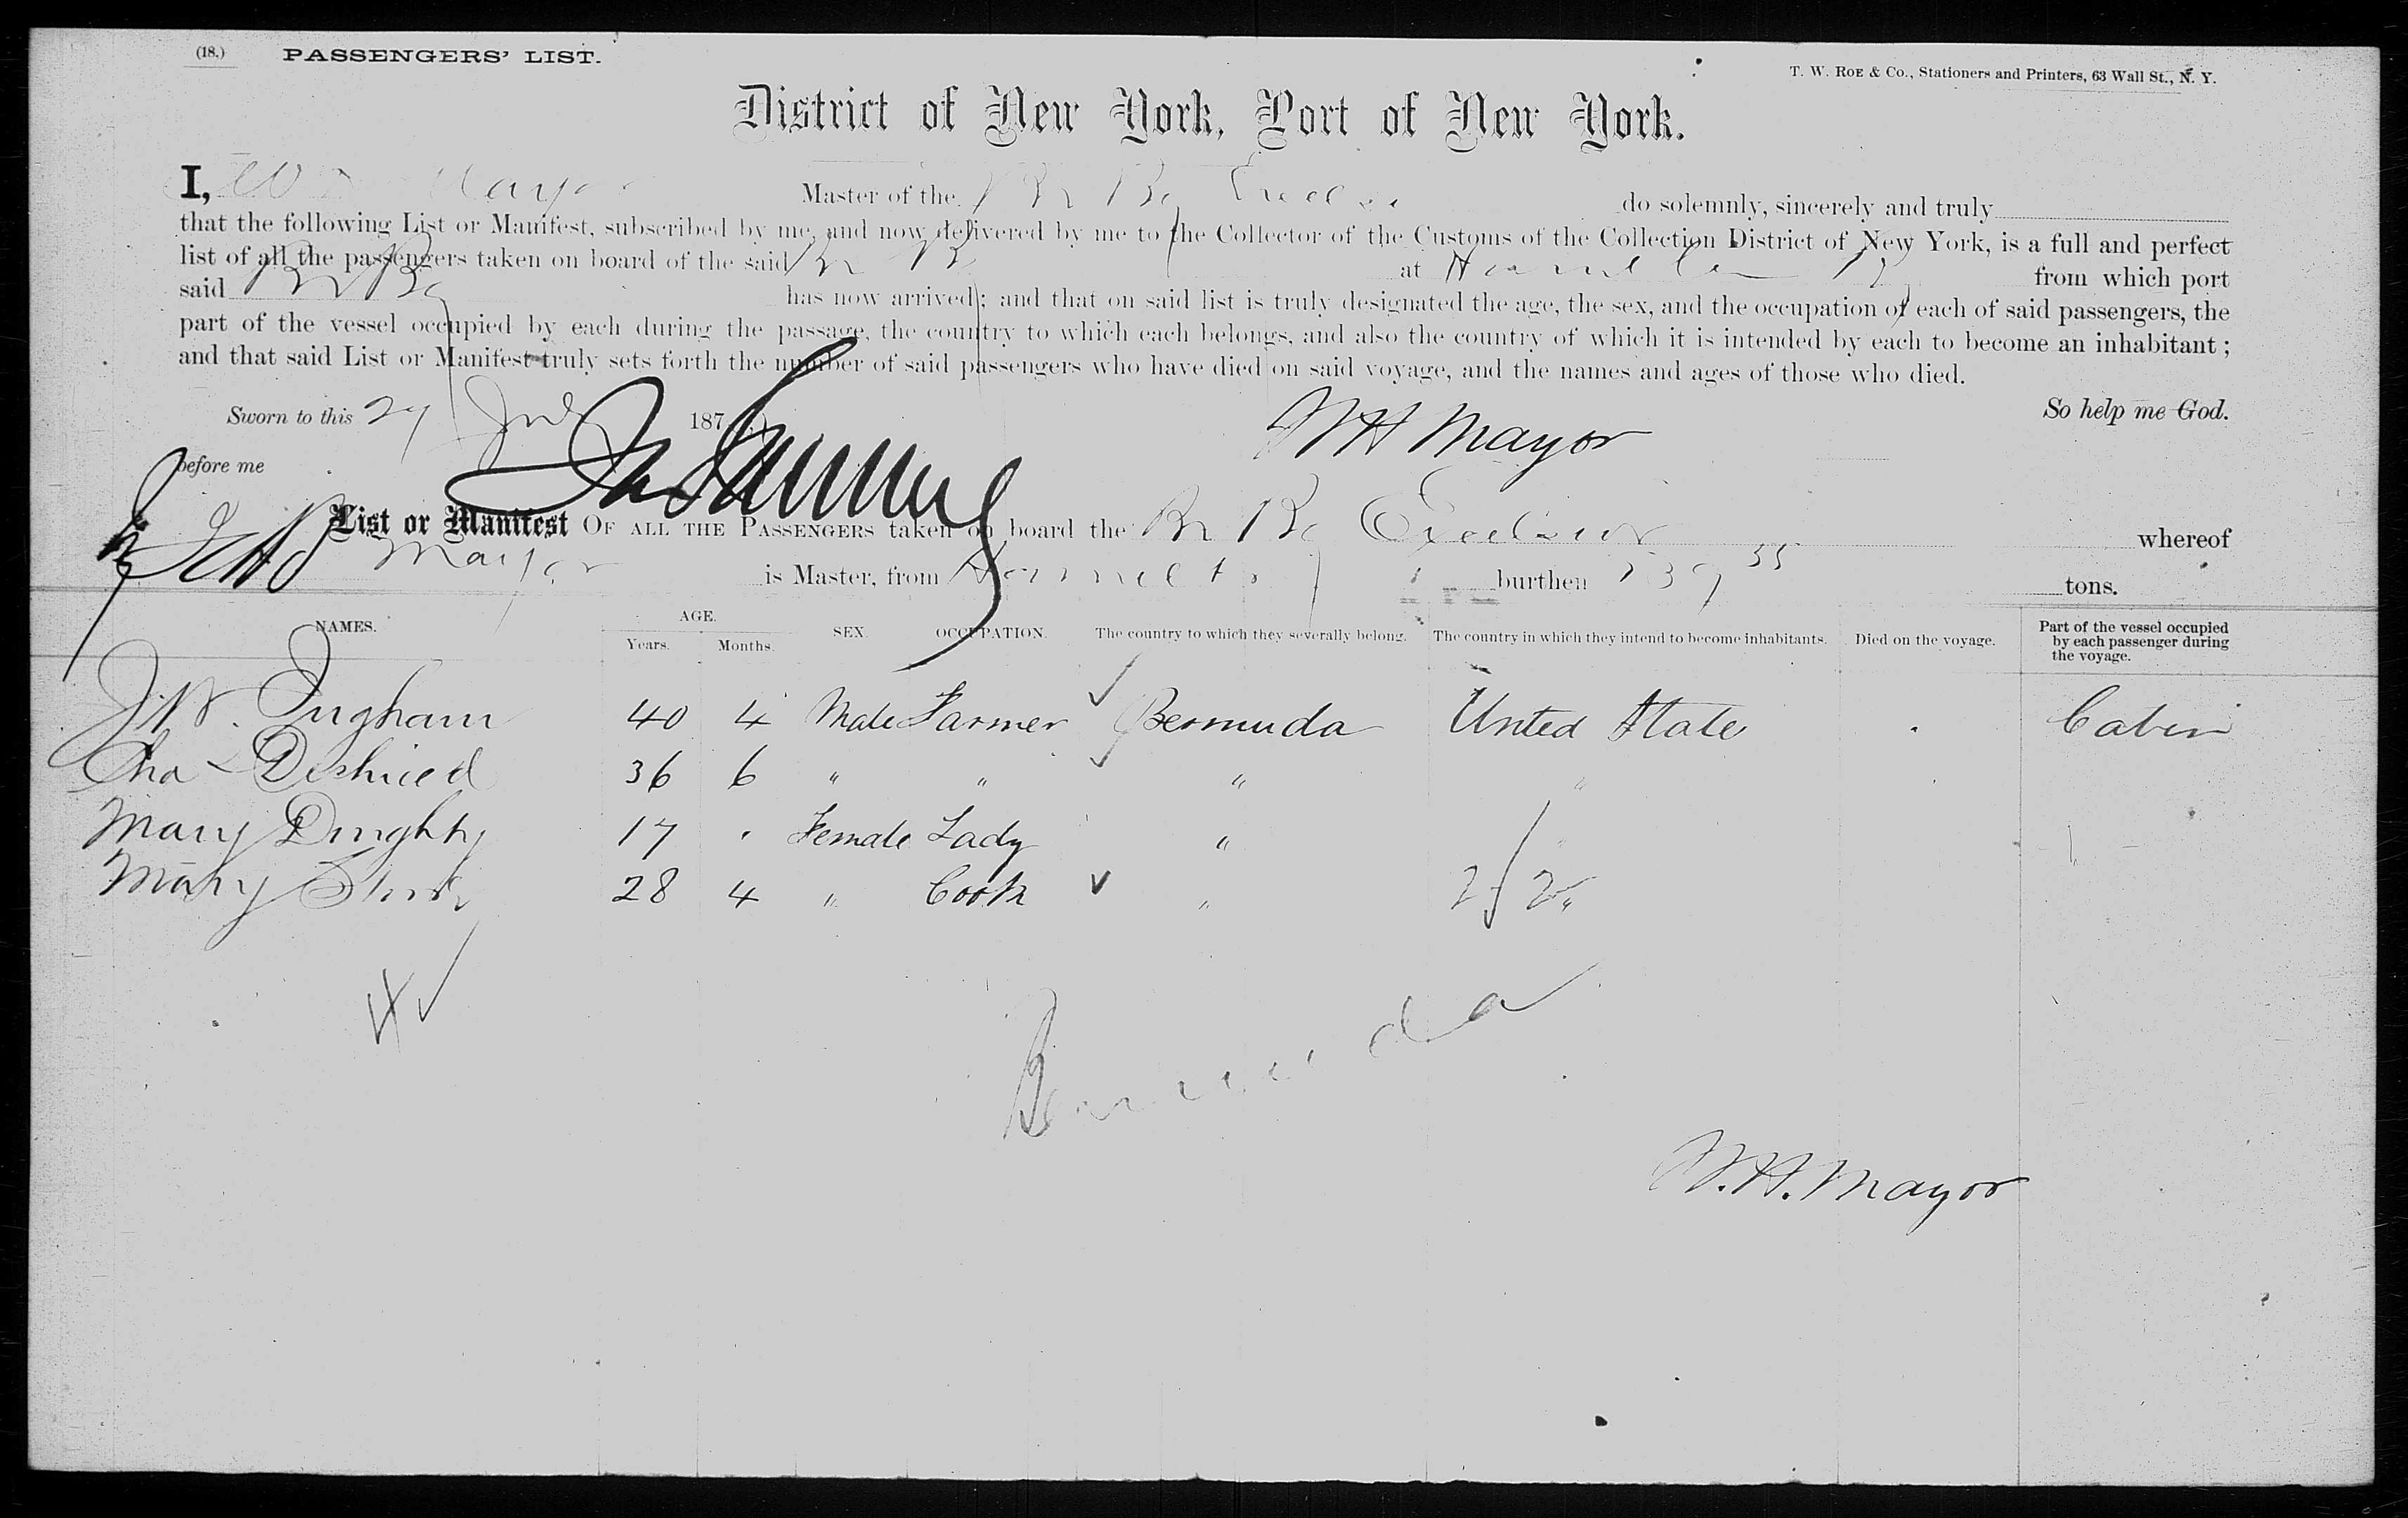 (18.) PASSENGERS' LIST.
T. W. ROE & Co., Stationers and Printers, 63 Wall St., N. Y.
District of New York, Port of New York.
I, Mayor Master of the Br Bg do solemnly, sincerely and truly
that the following List or Manifest, subscribed by me, and now delivered by me to the Collector of the Customs of the Collection District of New York, is a full and perfect
list of all the passengers taken on board of the said Br B at from which port
said Br Bg has now arrived; and that on said list is truly designated the age, the sex, and the occupation of each of said passengers, the
part of the vessel occupied by each during the passage, the country to which each belongs, and also the country of which it is intended by each to become an inhabitant;
and that said List or Manifest truly sets forth the number of said passengers who have died on said voyage, and the names and ages of those who died.
Sworn to this 29 187 So help me God.
WH Mayor
before me
List or Manifest OF ALL THE PASSENGERS taken on board the Br Bg Excelsior whereof
Mayor is Master, from burthen tons.
NAMES. AGE. Years. Months. SEX. OCCUPATION. The country to which they severally belong. The country in which they intend to become inhabitants. Died on the voyage. Part of the vessel occupied by each passenger during the voyage.
Ingham 40 4 Male Farmer Bermuda Unted State Cabin
Cha 36 6 " " " "
Mary 17 Female Lady "
Mary 28 4 " Cook "
4
Bermuda
W.H. Mayor